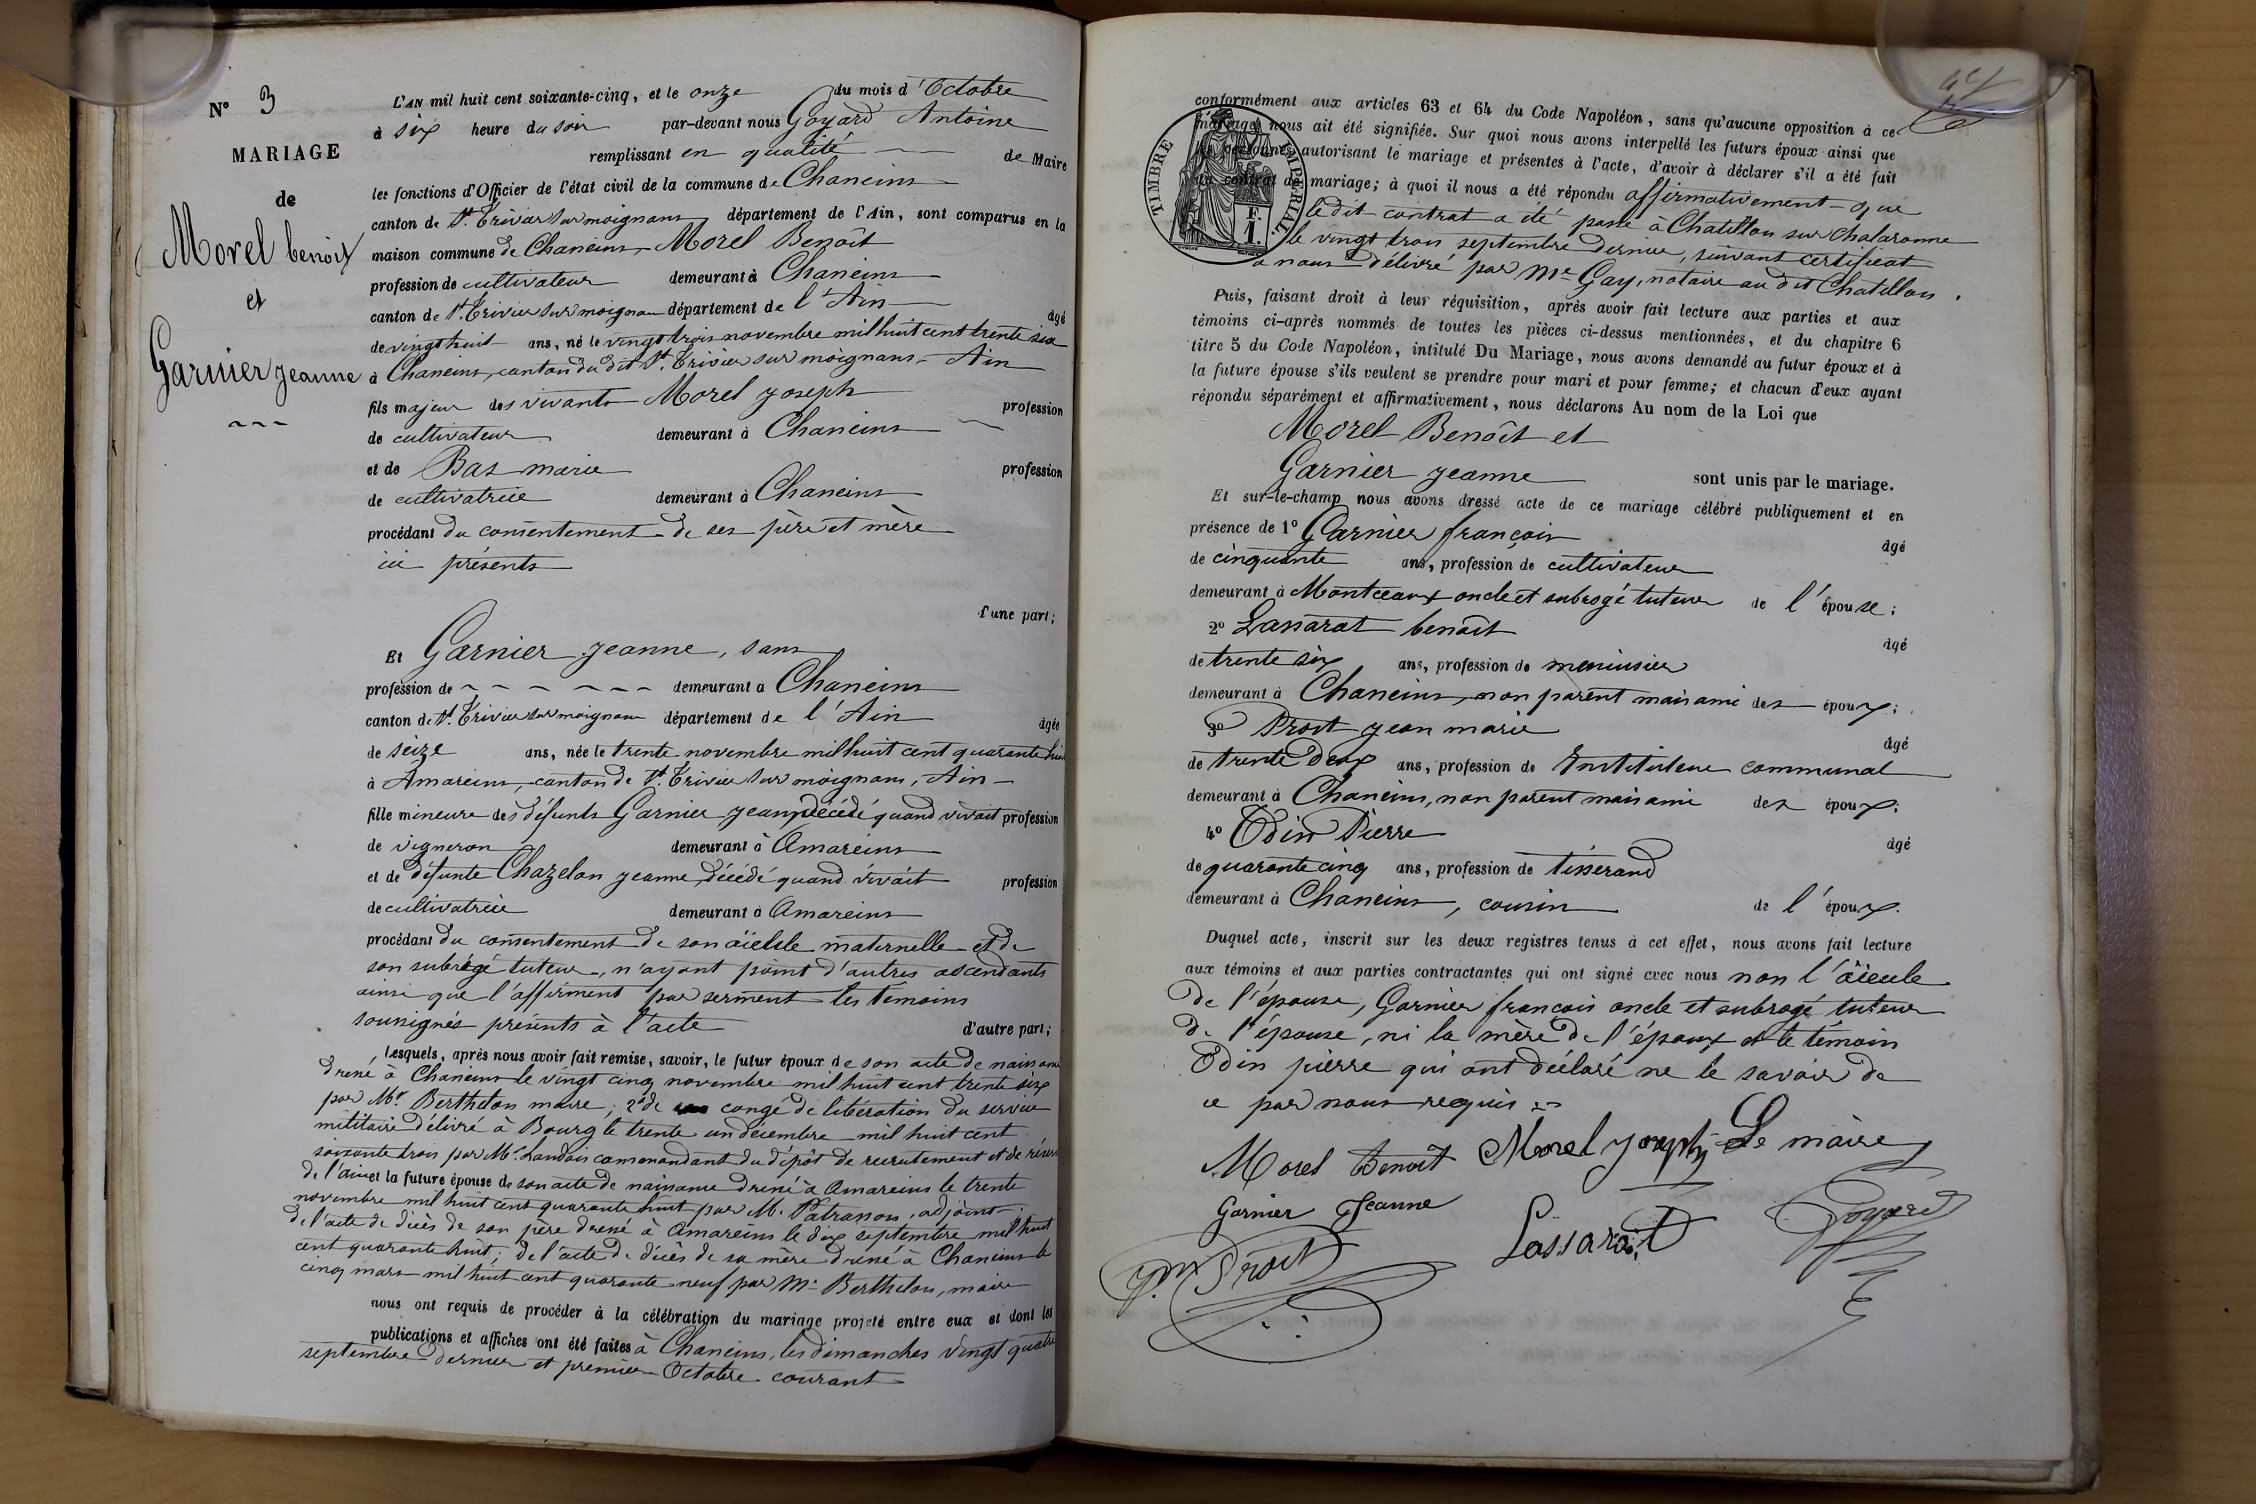 N° 3
MARIAGE
de
Morel benoit
et
Garnier jeanne
L'AN mil huit cent soixante-cinq, et le onze du mois d'Octobre
à six heure du soir par-devant nous Goyard Antoine
remplissant en qualité de Maire
les fonctions d'Officier de l'état civil de la commune de Chaneins
canton de St. Trivier sur moignans, département de l'Ain, sont comparus en la
maison commune de Chaneins, Morel Benoît
profession de cultivateur demeurant à Chaneins
canton de St. Trivier sur moignans département de l'Ain âgé
de vingt huit ans, né le vingt trois novembre mil huit cent trente six
à Chaneins, canton du dit St. Trivier sur moignans - Ain
fils majeur des vivants Morel joseph profession
de cultivateur demeurant à Chaneins
et de Bas marie profession
de cultivatrice demeurant à Chaneins
procédant du consentement de ses père et mère
ici présents
d'une part;
Et Garnier jeanne, sans
profession de demeurant à Chaneins
canton de St. Trivier sur moignans département de l'Ain âgée
de seize ans, née le trente novembre mil huit cent quarante huit
à Amareins, canton de St. Trivier sur moignans, Ain
fille mineure des défunts Garnier jean, décédé quand vivait profession
de vigneron demeurant à Amareins
et de défunte Chazelon jeanne, décédé quand vivait profession
de cultivatrice demeurant à Amareins
procédant du consentement de son aïeule maternelle et de
son subrogé tuteur, n'ayant point d'autres ascendants
ainsi que l'affirment par serment les témoins
soussignés présents à l'acte d'autre part;
Lesquels, après nous avoir fait remise, savoir, le futur époux de son acte de naissance
dressé à Chaneins le vingt cinq novembre mil huit cent trente six
par Mr. Berthelon maire; 2° de congé de libération du service
militaire délivré à Bourg le trente un décembre mil huit cent
soixante trois par Mr. Landois commandant du dépôt de recrutement et de réserve
de l'Ain et la future épouse de son acte de naissance dressé à Amareins le trente
novembre mil huit cent quarante huit par M. Patrasson, adjoint
de l'acte de décès de son père dressé à Amareins le dix septembre mil huit
cent quarante huit; de l'acte de décès de sa mère dressé à Chaneins le
cinq mars mil huit cent quarante neuf par Mr. Berthelon, maire
nous ont requis de procéder à la célébration du mariage projeté entre eux et dont les
publications et affiches ont été faites à Chaneins, les dimanches vingt quatre
septembre dernier et premier Octobre courant
conformément aux articles 63 et 64 du Code Napoléon, sans qu'aucune opposition à ce
mariage nous ait été signifiée. Sur quoi nous avons interpellé les futurs époux ainsi que
les personnes autorisant le mariage et présentes à l'acte, d'avoir à déclarer s'il a été fait
un contrat de mariage; à quoi il nous a été répondu affirmativement - que
le dit contrat a été passé à Chatillon sur chalaronne
le vingt trois septembre dernier, suivant certificat
à nous délivré par Me Gay, notaire au dit Chatillon.
TIMBRE IMPERIAL
Puis, faisant droit à leur réquisition, après avoir fait lecture aux parties et aux
témoins ci-après nommés de toutes les pièces ci-dessus mentionnées, et du chapitre 6
titre 5 du Code Napoléon, intitulé Du Mariage, nous avons demandé au futur époux et à
la future épouse s'ils veulent se prendre pour mari et pour femme; et chacun d'eux ayant
répondu séparément et affirmativement, nous déclarons Au nom de la Loi que
Morel Benoît et
Garnier jeanne sont unis par le mariage.
Et sur-le-champ nous avons dressé acte de ce mariage célébré publiquement et en
présence de 1° Garnier françois âgé
de cinquante ans, profession de cultivateur
demeurant à Montceaux oncle et subrogé tuteur de l'épouse;
2° Lassarat benoît âgé
de trente six ans, profession de menuisier
demeurant à Chaneins, non parent mais ami des époux;
3° Proit jean marie âgé
de trente deux ans, profession de Instituteur communal
demeurant à Chaneins, non parent mais ami des époux;
4° Odin Pierre âgé
de quarante cinq ans, profession de tisserand
demeurant à Chaneins, cousin de l'époux.
Duquel acte, inscrit sur les deux registres tenus à cet effet, nous avons fait lecture
aux témoins et aux parties contractantes qui ont signé avec nous non l'aïeule
de l'épouse, Garnier françois oncle et subrogé tuteur
de l'épouse, ni la mère de l'époux et le témoin
Odin pierre qui ont déclaré ne le savoir de
ce par nous requis
Morel Benoît Morel joseph Le maire
Garnier Jeanne Lassarat Goyard
jm Proit